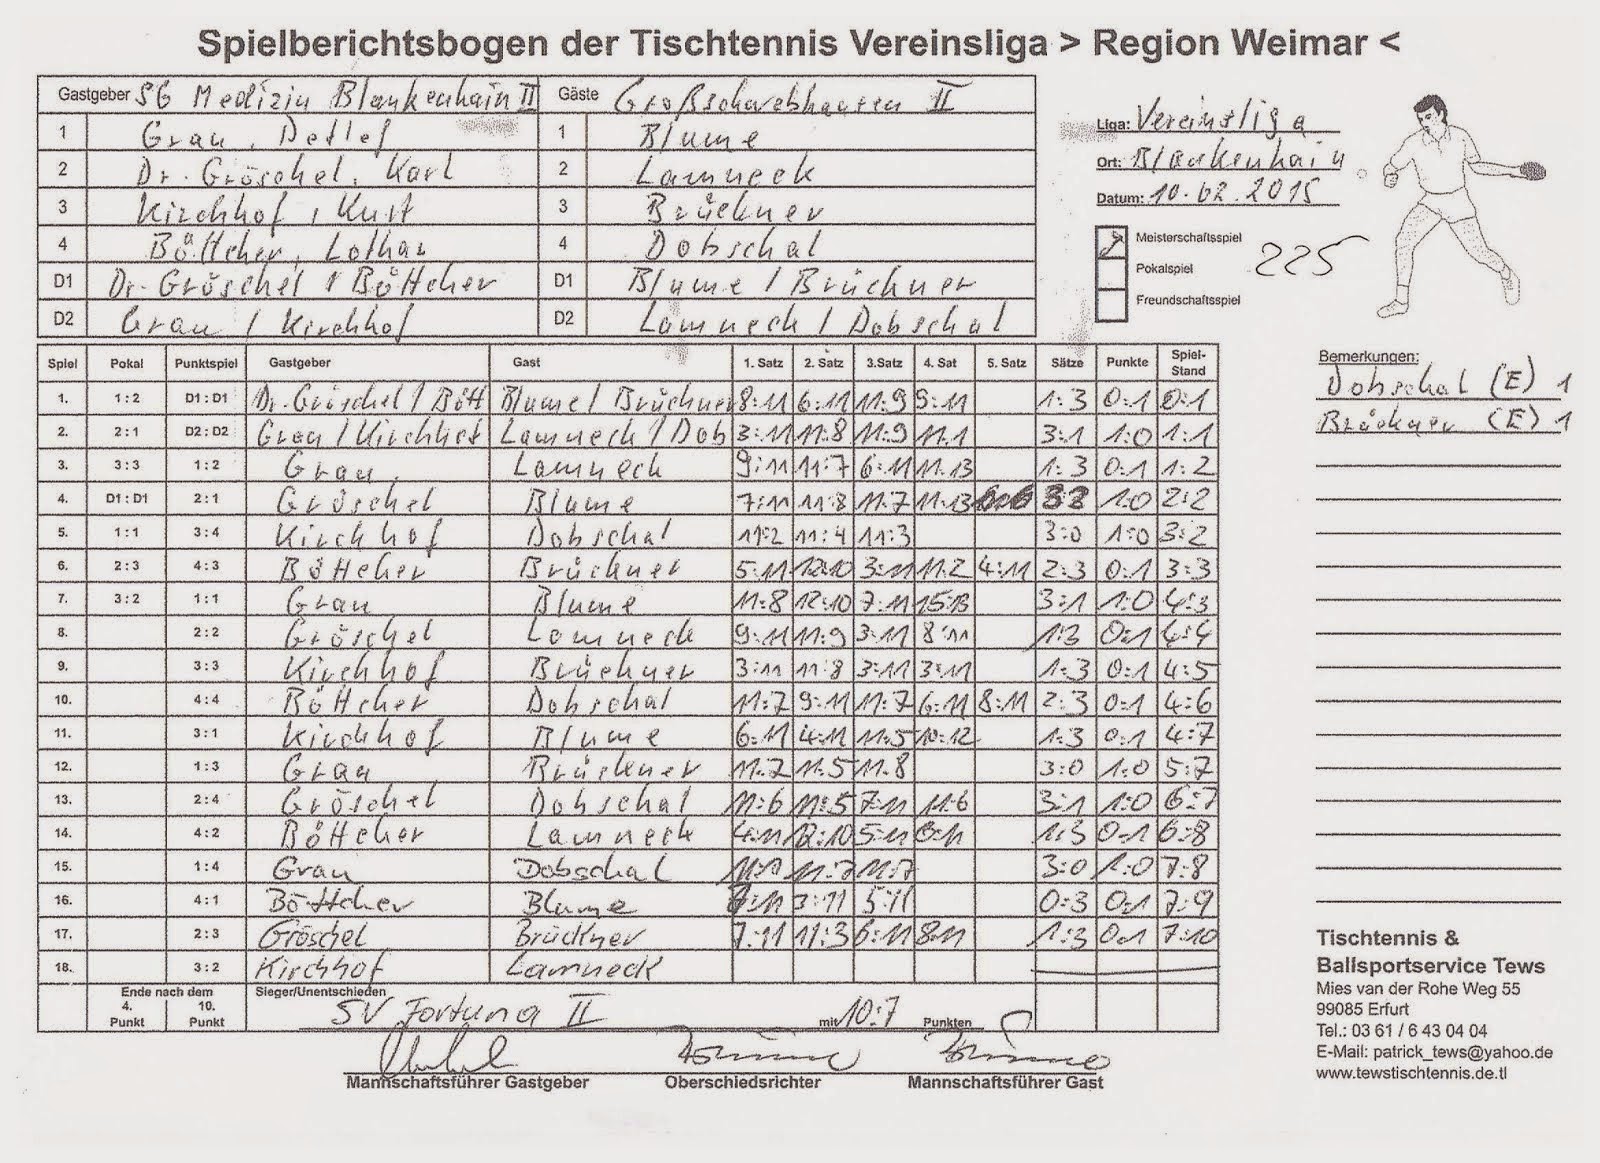 Spielberichtsbogen der Tischtennis Vereinsliga > Region Weimar <
Gastgeber SG Medizin Blankenhain II Gäste Großschwabhausen II
1 Grau, Detlef 1 Blume
2 Dr. Gröschel, Karl 2 Lamneck
3 Kirchhof, Kurt 3 Brückner
4 Böttcher, Lothar 4 Dobschal
D1 Dr. Gröschel / Böttcher D1 Blume / Brückner
D2 Grau / Kirchhof D2 Lamneck / Dobschal
Liga: Vereinsliga
Ort: Blankenhain
Datum: 10.02.2015
Meisterschaftsspiel
Pokalspiel
Freundschaftsspiel
225
Spiel Pokal Punktspiel Gastgeber Gast 1. Satz 2. Satz 3.Satz 4. Sat 5. Satz Sätze Punkte Spiel-Stand
1. 1:2 D1:D1 Dr. Gröschel / Bött Blume / Brückner 8:11 6:11 11:9 9:11 1:3 0:1 0:1
2. 2:1 D2:D2 Grau / Kirchhof Lamneck / Dob 3:11 11:8 11:9 11:1 3:1 1:0 1:1
3. 3:3 1:2 Grau Lamneck 9:11 11:7 6:11 11:13 1:3 0:1 1:2
4. D1:D1 2:1 Gröschel Blume 7:11 11:8 11:7 11:13 1:0 2:2
5. 1:1 3:4 Kirchhof Dobschal 11:2 11:4 11:3 3:0 1:0 3:2
6. 2:3 4:3 Böttcher Brückner 5:11 12:10 3:11 11:2 4:11 2:3 0:1 3:3
7. 3:2 1:1 Grau Blume 11:8 12:10 7:11 15:13 3:1 1:0 4:3
8. 2:2 Gröschel Lamneck 9:11 11:9 3:11 8:11 1:3 0:1 4:4
9. 3:3 Kirchhof Brückner 3:11 11:8 3:11 3:11 1:3 0:1 4:5
10. 4:4 Böttcher Dobschal 11:7 9:11 11:7 6:11 8:11 2:3 0:1 4:6
11. 3:1 Kirchhof Blume 6:11 4:11 11:5 10:12 1:3 0:1 4:7
12. 1:3 Grau Brückner 11:7 11:5 11:8 3:0 1:0 5:7
13. 2:4 Gröschel Dobschal 11:6 11:5 7:11 11:6 3:1 1:0 6:7
14. 4:2 Böttcher Lamneck 4:11 12:10 5:11 6:11 1:3 0:1 6:8
15. 1:4 Grau Dobschal 11:7 11:7 11:7 3:0 1:0 7:8
16. 4:1 Böttcher Blume 3:11 5:11 0:3 0:1 7:9
17. 2:3 Gröschel Brückner 7:11 11:3 6:11 8:11 1:3 0:1 7:10
18. 3:2 Kirchhof Lamneck
Ende nach dem Sieger/Unentschieden
4. Punkt 10. Punkt SV Fortuna II mit 10:7 Punkten
Mannschaftsführer Gastgeber Oberschiedsrichter Mannschaftsführer Gast
Bemerkungen:
Dobschal (E) 1
Brückner (E) 1
Tischtennis &
Ballsportservice Tews
Mies van der Rohe Weg 55
99085 Erfurt
Tel.: 03 61 / 6 43 04 04
E-Mail: patrick_tews@yahoo.de
www.tewstischtennis.de.tl